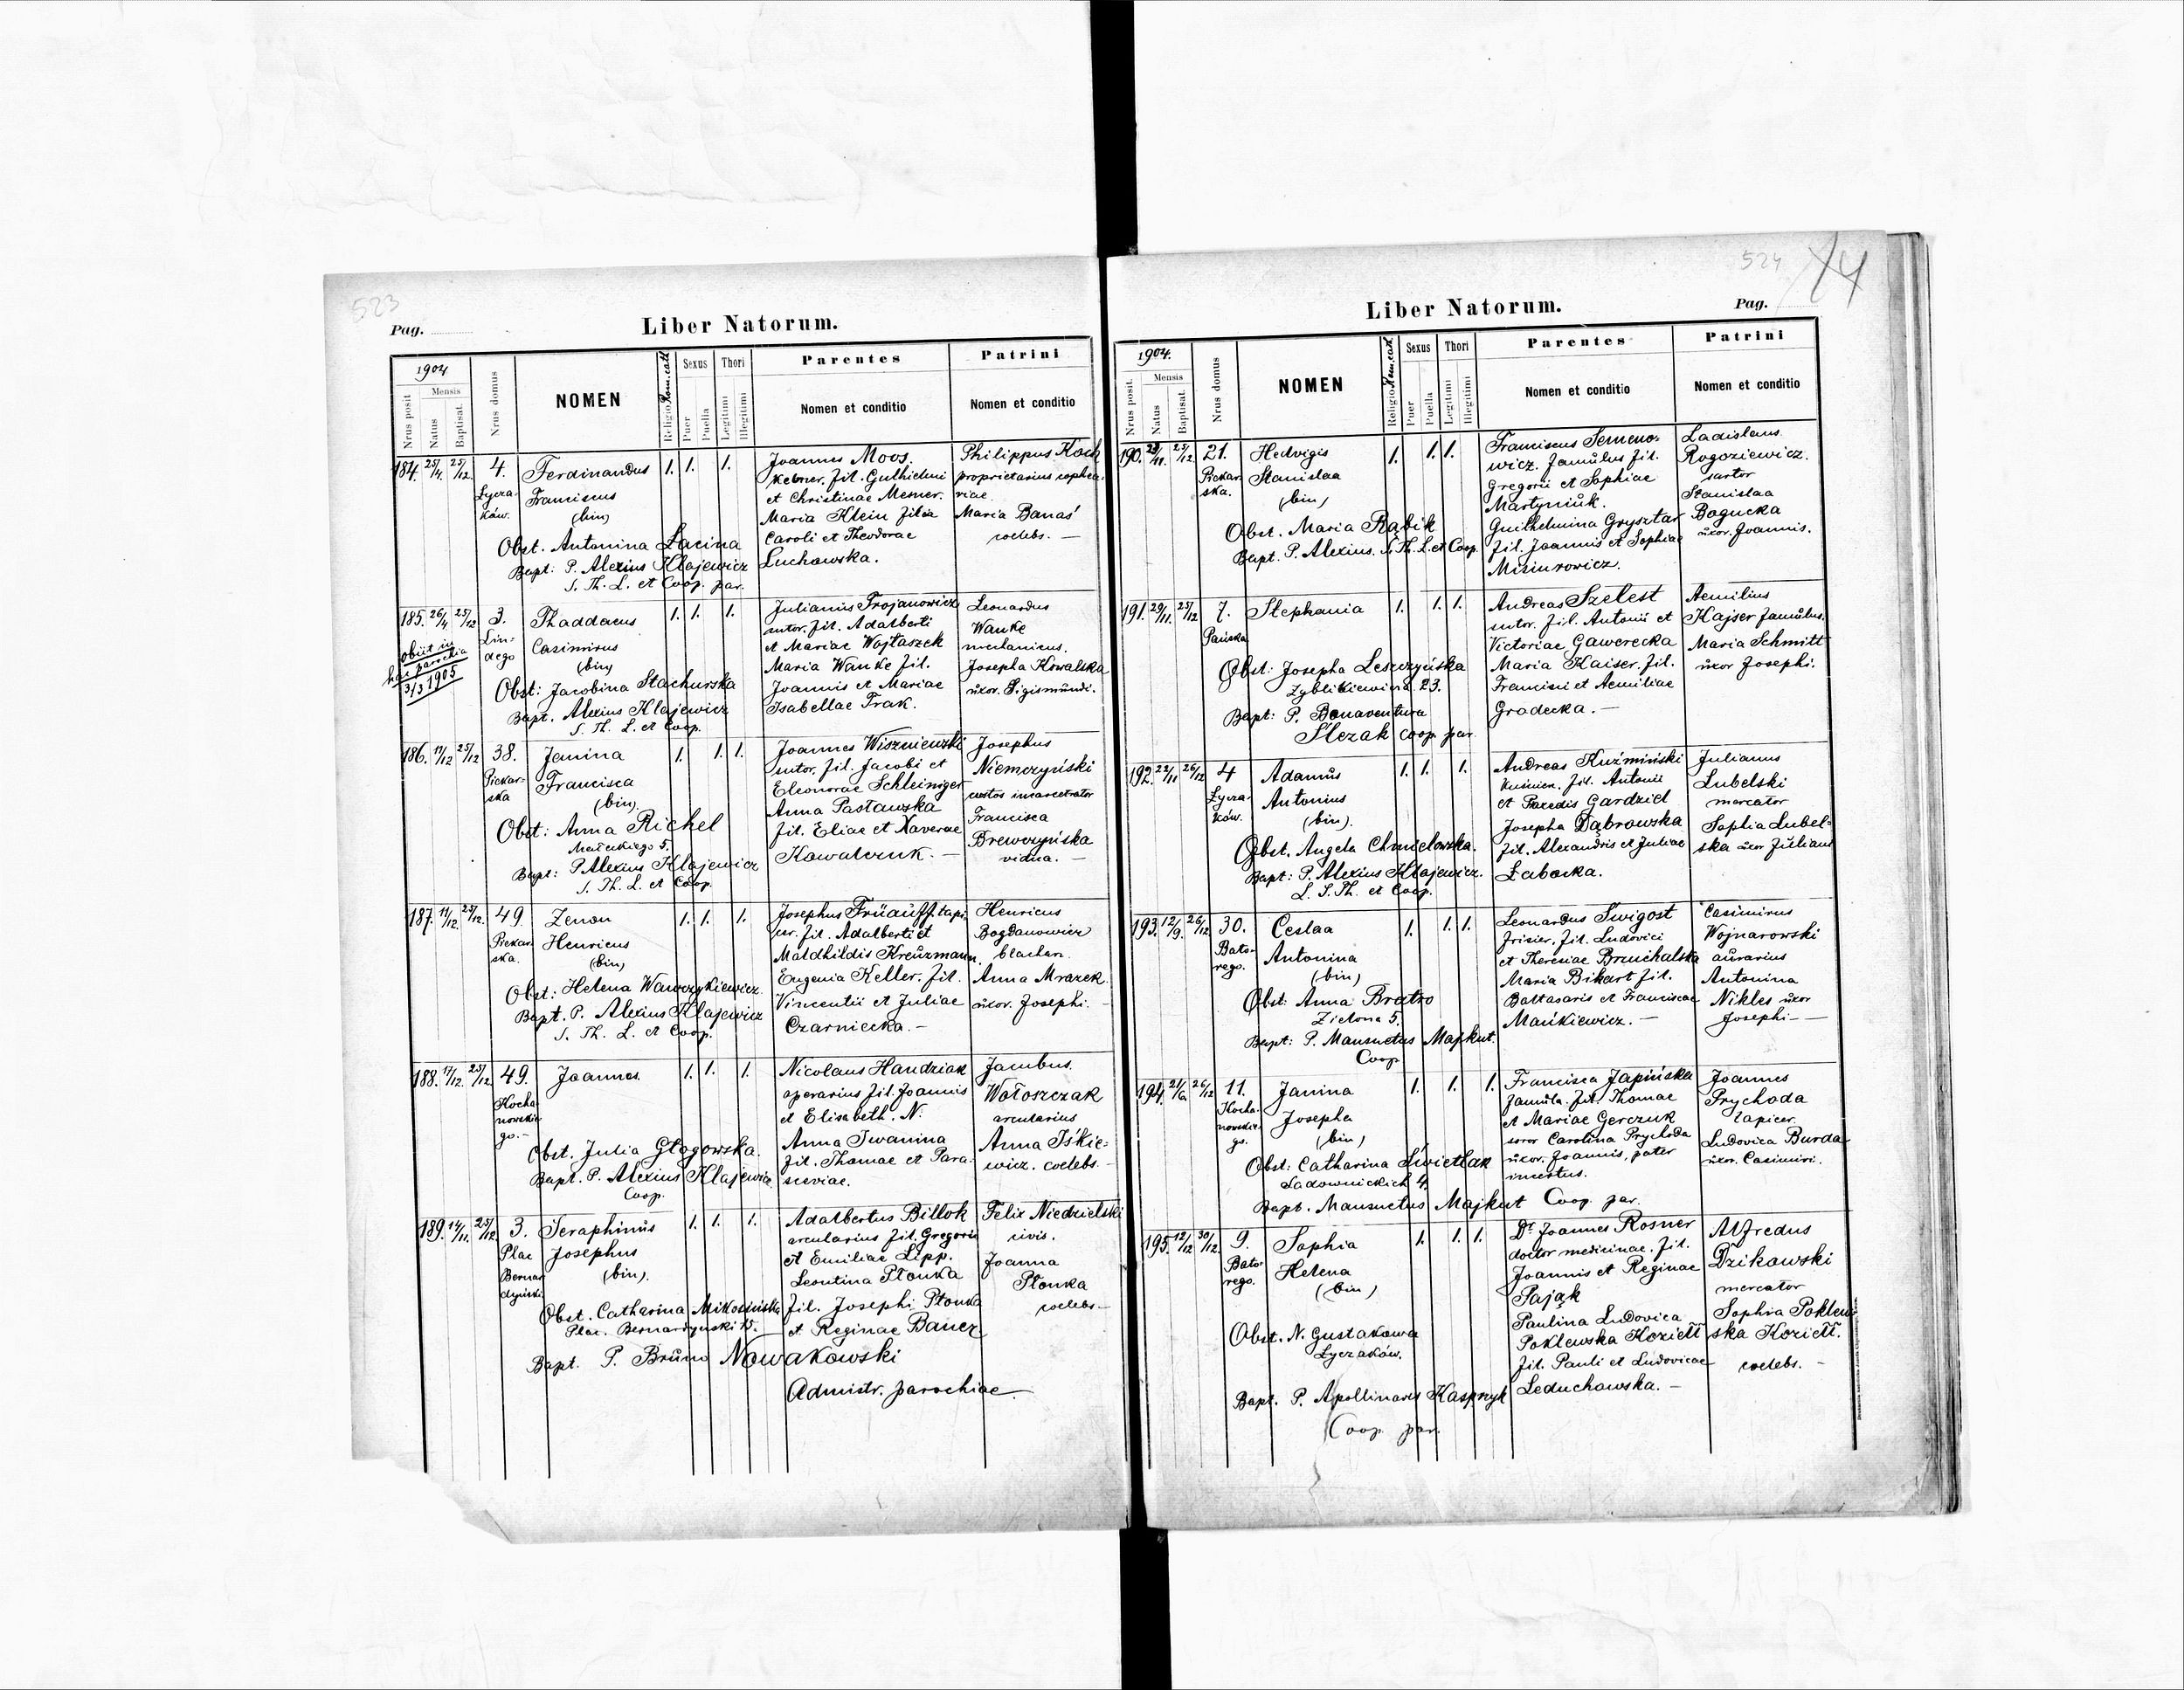 523
Pag.
Liber Natorum.
1904
Mensis
Nrus posit.
Natus
Baptisat.
Nrus domus
NOMEN
Religio Rom. cath
Sexus
Puer
Puella
Thori
Legitimi
Illegitimi
Parentes
Nomen et conditio
Patrini
Nomen et conditio
184. 25/4. 25/12. 4. Ferdinandus 1. 1. 1. Joannes Moos. Philippus Koch
Kelner. fil. Gulhielmi proprietarius
Lycza- Franciscus et Christinae Mesner. riae.
ków. (bin) Maria Klein filia Maria Banaś
Obst. Antonina Łacina Caroli et Theodorae coelebs. —
Bapt: P. Alexius Klajewicz Luchowska.
S. Th. L. et Coop. par.
185. 26/4 25/12 3. Thaddaeus 1. 1. 1. Julianus Trojanowicz Leonardus
sutor. fil. Adalberti Wanke
obiit in Lin- Casimirus et Mariae Wojtaszek mechanicus.
hac parochia dego (bin) Maria Wanke fil. Josepha Kowalska
3/3 1905 Obst: Jacobina Stachurska Joannis et Mariae uxor. Sigismundi.
Bapt. Alexius Klajewicz Isabellae Trak.
S. Th. L. et Coop.
186. 11/12 25/12 38. Janina 1. 1. 1. Joannes Wiszniewski Josephus
sutor. fil. Jacobi et Niemczyński
Piekar- Francisca Eleonorae Schleiniger custos incarcerator
ska (bin) Anna Pastawska Francisca
Obst: Anna Richel fil. Eliae et Xaverae Brewczyńska
5. Kowalczuk. — vidua. —
Bapt: P Alexius Klajewicz
S. Th. L. et Coop.
187. 11/12. 25/12. 49. Zenon 1. 1. 1. Josephus Früauff. tapi- Henricus
cer. fil. Adalberti et Bogdanowicz
Piekar- Henricus Maldhildis Kreuzmann. blachar.
ska. (bin) Eugenia Keller. fil. Anna Mrazek.
Obst: Helena Wawrzykiewicz. Vincentii et Juliae uxor. Josephi. —
Bapt. P. Alexius Klajewicz Czarniecka. —
S. Th. L. et Coop.
188. 17/12. 25/12 49. Joannes. 1. 1. 1. Nicolaus Handziak Jacobus.
operarius fil. Joannis Wołoszczak
Kocha- et Elisabeth. N. arcularius
nowskie- Anna Iwanina Anna Iśkie-
go. — fil. Thomae et Para- wicz. coelebs. —
Obst. Julia Głogowska. sceviae.
Bapt. P. Alexius Klajewicz
Coop.
189. 14/11. 25/12. 3. Seraphinus 1. 1. 1. Adalbertus Billok Felix Niedzielski
arcularius fil. Gregorii civis.
Plac Josephus et Emiliae Lipp. Joanna
Bernar- (bin). Leontina Płonka Płonka
dyński fil. Josephi Płonka coelebs —
Obst. Catharina et Reginae Bauer
Plac. Bernardynski 15.
Bapt. P. Bruno Nowakowski
Admistr. parochiae
524
14
Liber Natorum.
Pag.
1904.
Mensis
Nrus posit.
Natus
Baptisat.
Nrus domus
NOMEN
Religio Rom. cath
Sexus
Puer
Puella
Thori
Legitimi
Illegitimi
Parentes
Nomen et conditio
Patrini
Nomen et conditio
190. 25/12 21. Hedvigis 1. 1. 1. Franciscus Semeno- Ladislaus
wicz. famulus fil. Rogoziewicz.
Piekar- Stanislaa Gregorii et Sophiae sartor
ska. (bin) Martyniuk. Stanislaa
Obst. Maria Bąbik Guilhelmina Grysztar Bogucka
Bapt. P. Alexius. S. Th. L. et Coop. fil. Joannis et Sophiae uxor. Joannis.
Misiurowicz.
191. 29/11. 25/12 7. Stephania 1. 1. 1. Andreas Szelest Aemilius
sutor. fil. Antonii et Kajser famulus.
Pańska Victoriae Gawerecka Maria Schmitt
Obst: Josepha Leszczyńska Maria Kaiser. fil. uxor Josephi.
Zyblikiewicza 23. Francisci et Aemiliae
Bapt: P. Bonaventura Gradecka. —
Slezak Coop. par.
192. 22/11 26/12 4 Adamus 1. 1. 1. Andreas Kuźmiński Julianus
Kuśnierz. fil. Antonii Lubelski
Łycza- Antonius et Paxedis Gardziel mercator
ków. (bin). Josepha Dąbrowska Sophia Lubel-
Obst. Angela Chmielowska. fil. Alexandris et Juliae ska uxor Juliani
Bapt: P. Alexius Klajewicz. Łabocka.
L. S. Th. et Coop.
193. 12/9. 26/12 30. Ceslaa 1. 1. 1. Leonardus Swigost Casimirus
frisier. fil. Ludovici Wojnarowski
Bato- Antonina et Theresiae Bruchalska aurarius
rego. (bin) Maria Bikart fil. Antonina
Obst: Anna Bratro Baltasaris et Franciscae Nikles uxor
Zielona 5. Mańkiewicz. — Josephi —
Bapt: P. Mansuetus Majkut.
Coop.
194. 21/6. 26/12 11. Janina 1. 1. 1. Francisca Japińska Joannes
famula. fil. Thomae Prychoda
Kocha- Josepha et Mariae Gerczuk tapicer.
nowskie- (bin) soror Carolina Prychoda Ludovica Burda
go. uxor. Joannis, pater uxor. Casimiri.
Obst: Catharina Świetlak incertus.
Sadownickich 4.
Bapt. Mansuetus Majkut Coop. par.
195. 12/12 30/12. 9. Sophia 1. 1. 1. Dr. Joannes Rosner Alfredus
doctor medicinae. fil. Dzikowski
Bato- Helena Joannis et Reginae mercator
rego. (bin) Pająk Sophia Poklew-
Paulina Ludovica ska Koziełł.
Obst. N. Gustakowa Poklewska Koziełł coelebs. —
Łyczaków. fil. Pauli et Ludovicae
Bapt. P. Apollinaris Kasprzyk Leduchowska. —
Coop. par.